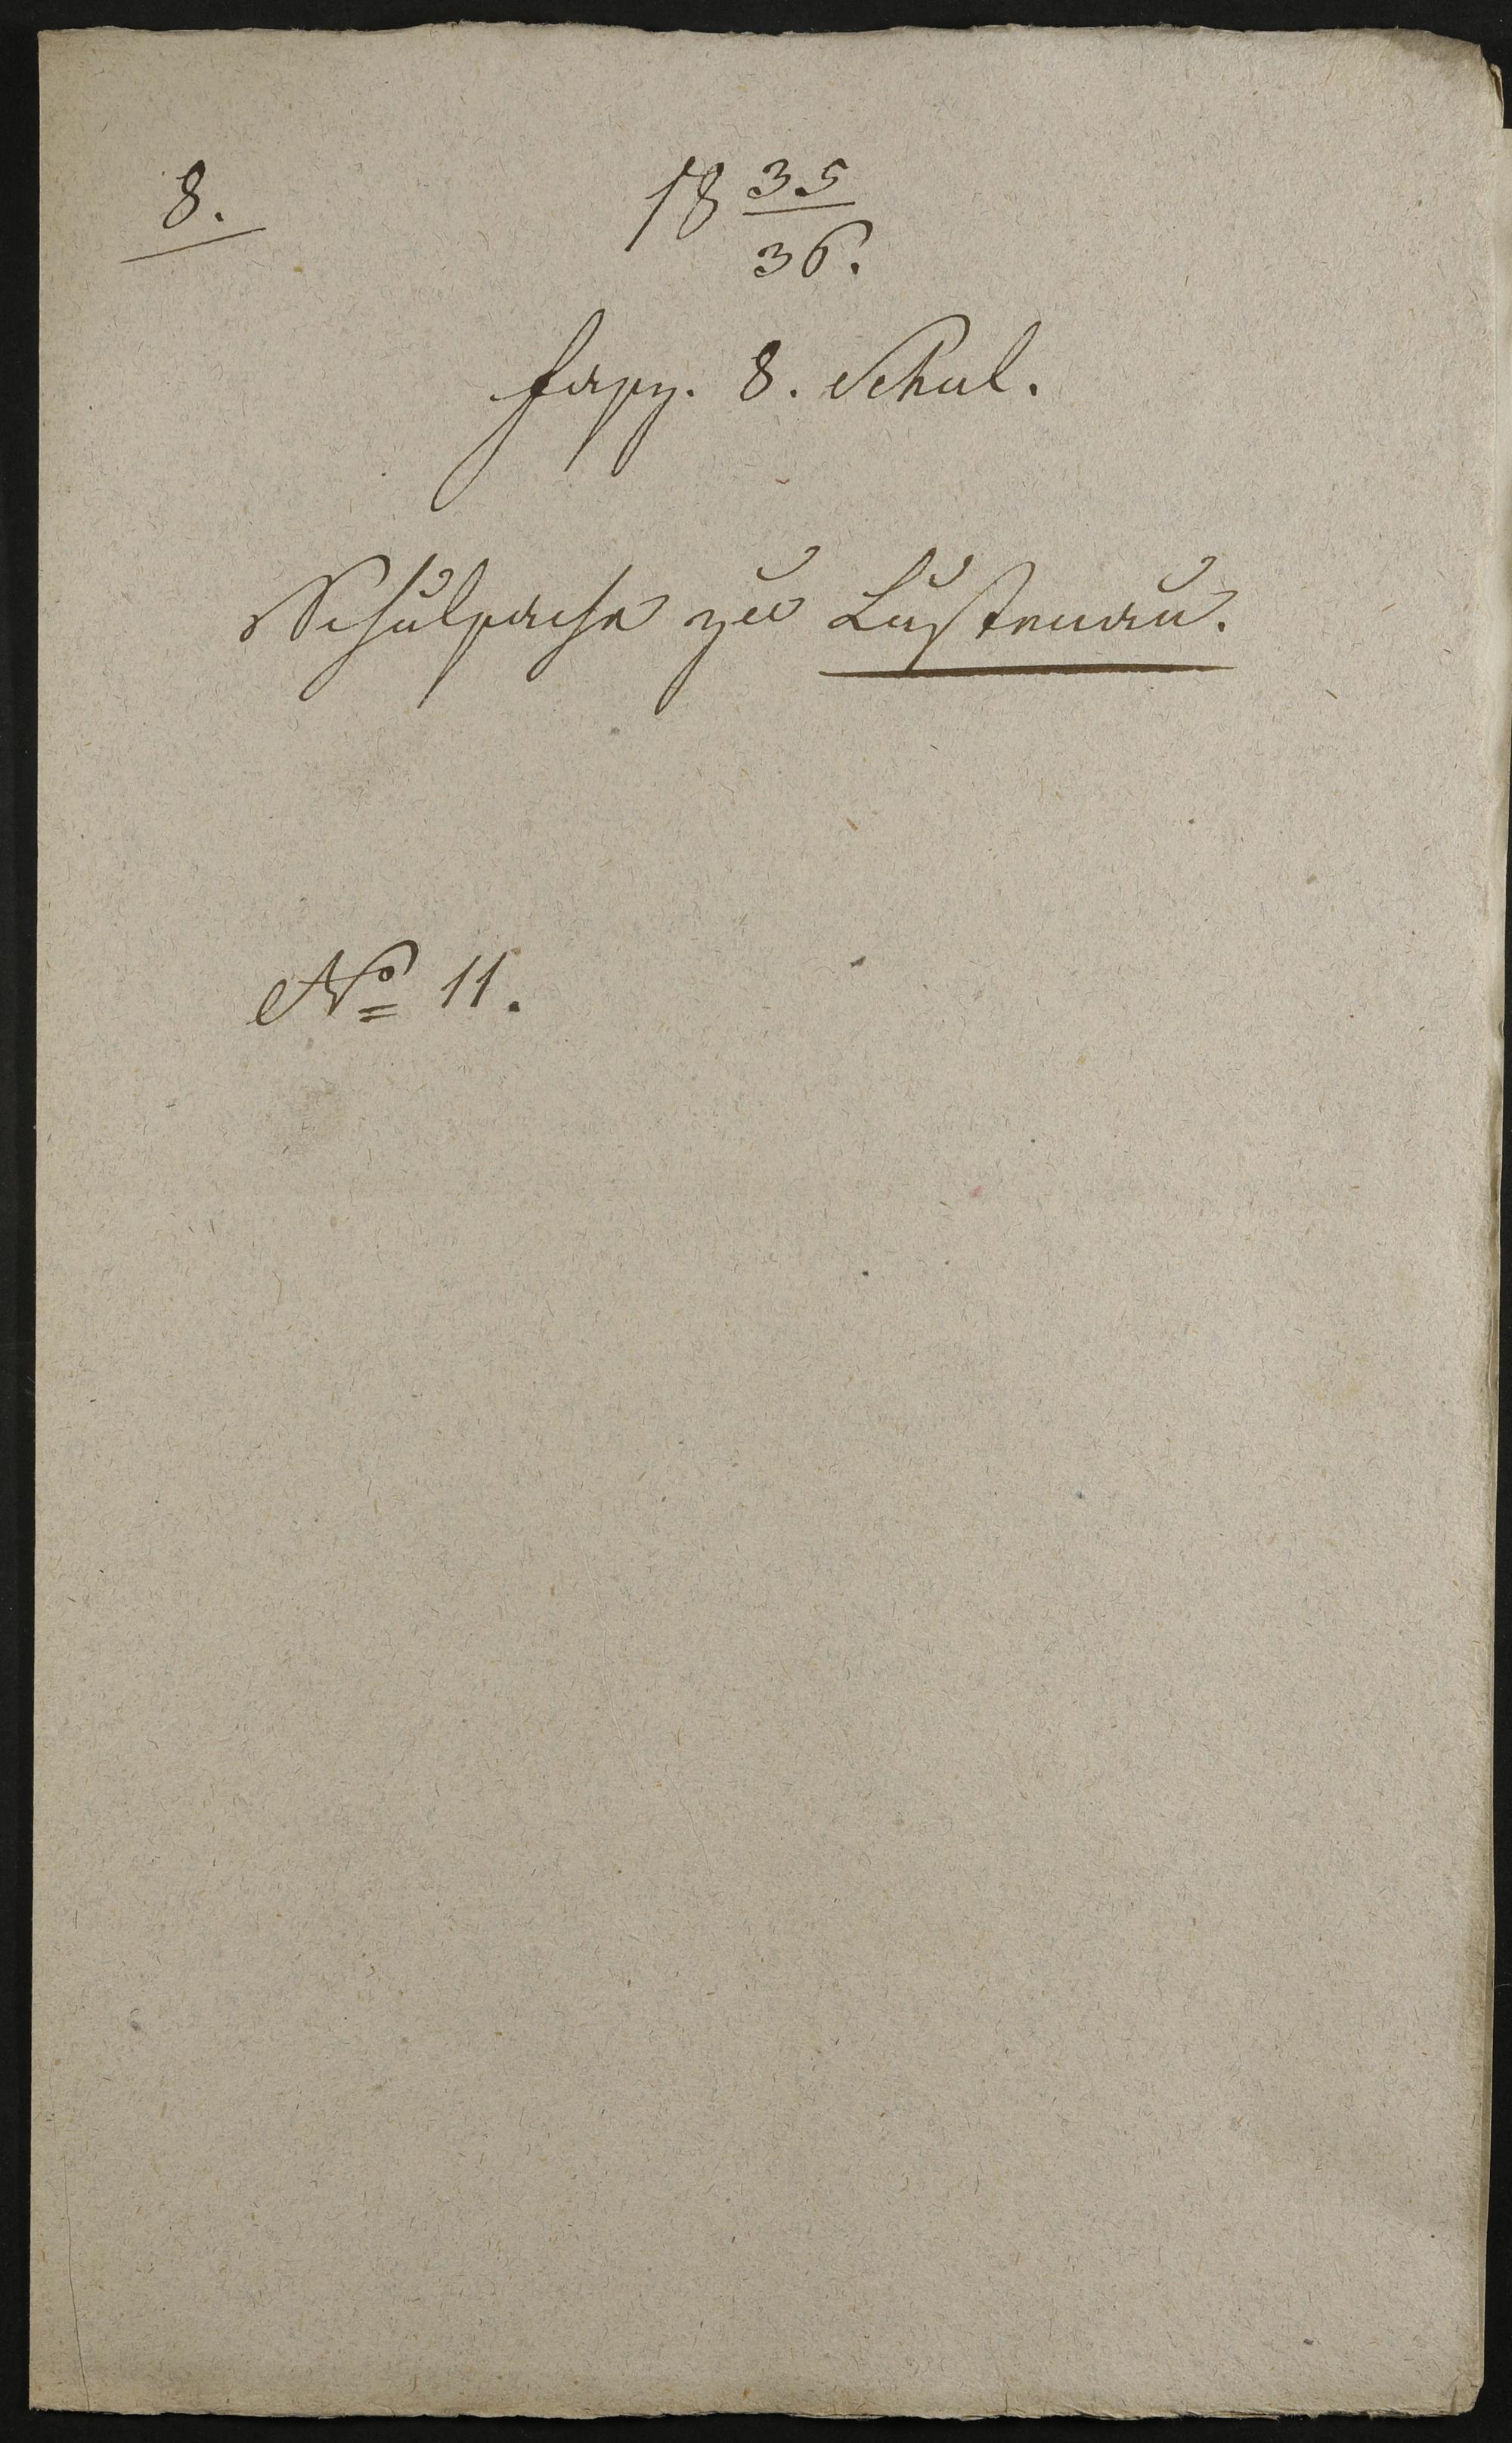 8.
18 35/36.
Fasz. 8. Schul.
Schulsache zu Lustenau.
No 11.